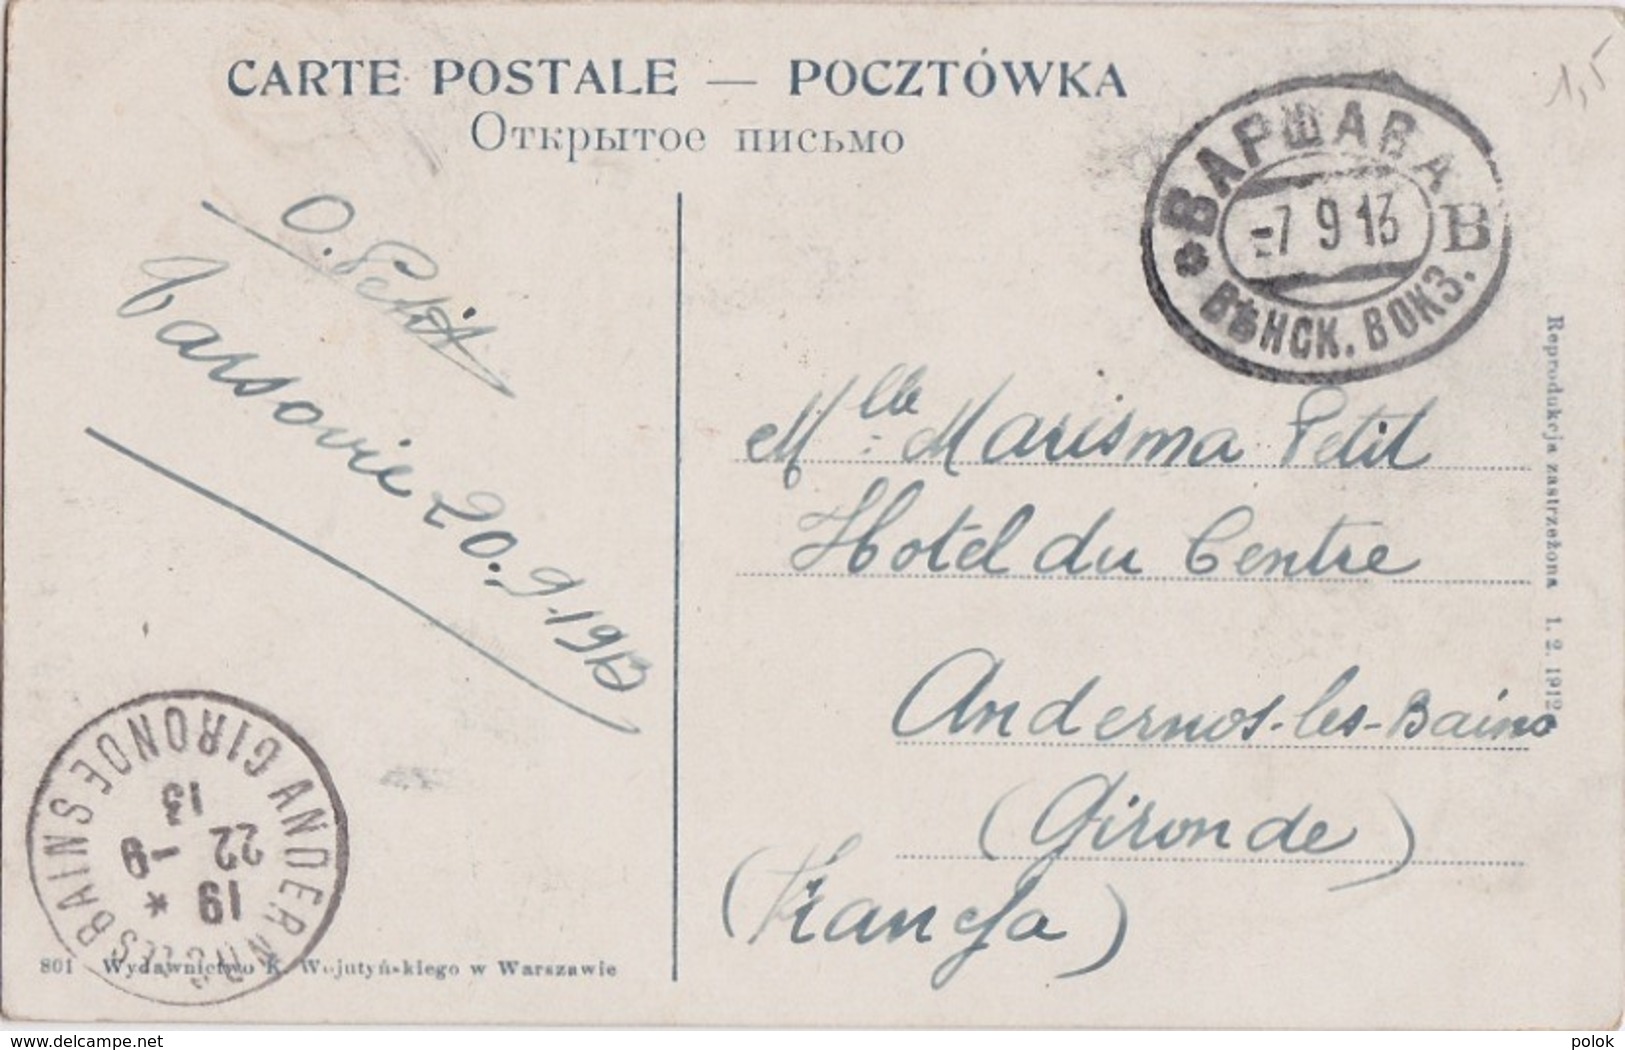 CARTE POSTALE — POCZTÓWKA
Открытое письмо
1,5
ВАРШАВА
-7 9 13
В
ВѢНСК. ВОКЗ.
O. Petit
Varsovie 20.9.1913
Mlle Marisma Petit
Hotel du Centre
Andernos-les-Bains
(Gironde)
(Francja)
Reprodukcja zastrzeżona 1. 2. 1912.
ANDERNOS LES BAINS GIRONDE
19 *
22 -9
13
801 Wydawnictwo K. Wojutyńskiego w Warszawie
www.delcampe.net
polok